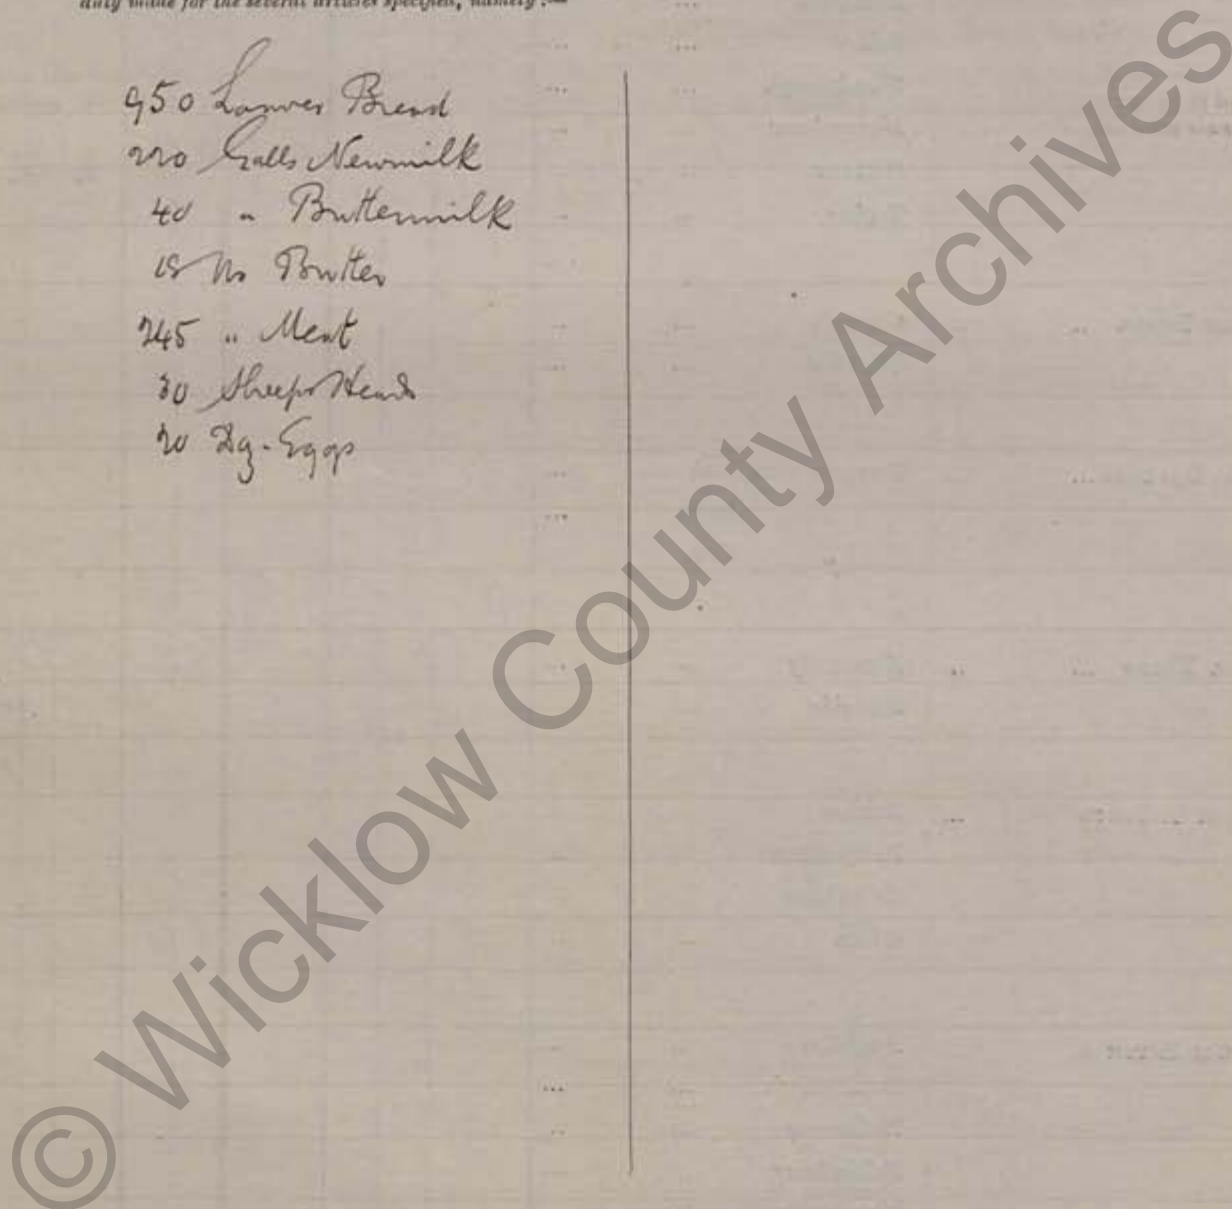 duly made for the several articles specified, namely :—
950 Loaves Bread
220 Galls Newmilk
40 " Buttermilk
lbs Butter
245 " Meat
30 Sheeps Heads
20 Dz. Eggs
© Wicklow County Archives